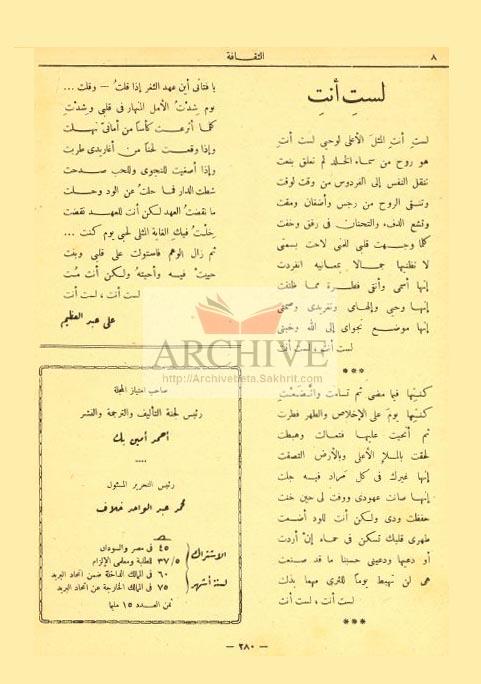 ٨
الثقافة
لستِ أنتِ
لستِ أنتِ المثلَ الأعلى لوحيى لست أنتِ
هو روح من سماء الخلد لم تعلق بنعت
تنقل النفس إلى الفردوس من وقت لوقت
وتنقى الروح من رجس وأضغان ومقت
وتشع الدفء والتحنان فى رفق وخفت
كلما وجهت قلبى للغنى لاحت بسمتى
لا تظنيها جمالا بمعانيه انفردت
إنها أسمى وأنقى فطرة مما ظننت
إنها وحيى وإلهامى وتغريدى وصمتى
إنها موضع نجواى إلى الله وخبتى
لست أنت ، لست أنت
***
كنتِها فيما مضى ثم تسامت واتضعتِ
كنتِها يوم على الإخلاص والطهر فطرت
ثم أنحيت عليها فتعالت وهبطت
لحقت بالملإ الأعلى وبالأرض التصقت
إنها غيرك فى كل مراد فيه جلت
إنها صانت عهودى ووفت لى حين خنت
حفظت ودى ولكن أنت للود أضعت
طهرى قلبك تسكن فى حماه إن أردت
أو دعيها ودعينى حسبنا ما قد صنعت
هى لن تهبط يوماً للثرى مهما بذلت
لست أنت ، لست أنت
***
يا فتاتى أين عهد الثغر إذا قلتُ — وقلت ...
يوم شِدْتُ الأمل المنهار فى قلبى وشِدْتِ
كلما أترعت كأساً من أمانىّ نهلت
وإذا وقعت لحناً من أغاريدى طربت
وإذا أصغيت للنجوى وللحب صدحت
شطت الدار فما حلت عن الود وحلت
ما نقضتُ العهد لكن أنت للعهد نقضت
خِلْتُ فيك الغاية المثلى لحبى يوم كنت ...
ثم زال الوهم فاستولت على قلبى وبنت
حييتْ فيه وأحيته ولكن أنت مُت
لست أنت ، لست أنت
على عبد العظيم
صاحب امتياز المجلة
رئيس لجنة التأليف والترجمة والنشر
أحمد أمين بك
....
رئيس التحرير المسئول
محمد عبد الواحد خلاف
الاشتراك لسنة أشهر
٤٥ فى مصر والسودان
٣٧/٥ للطلبة ومعلمى الإلزام
٦٠ فى الممالك الداخلة ضمن اتحاد البريد
٧٥ فى الممالك الخارجة عن اتحاد البريد
ثمن العدد ١٥ مليما
— ٢٨٠ —
ARCHIVE
http://Archivebeta.Sakhrit.com